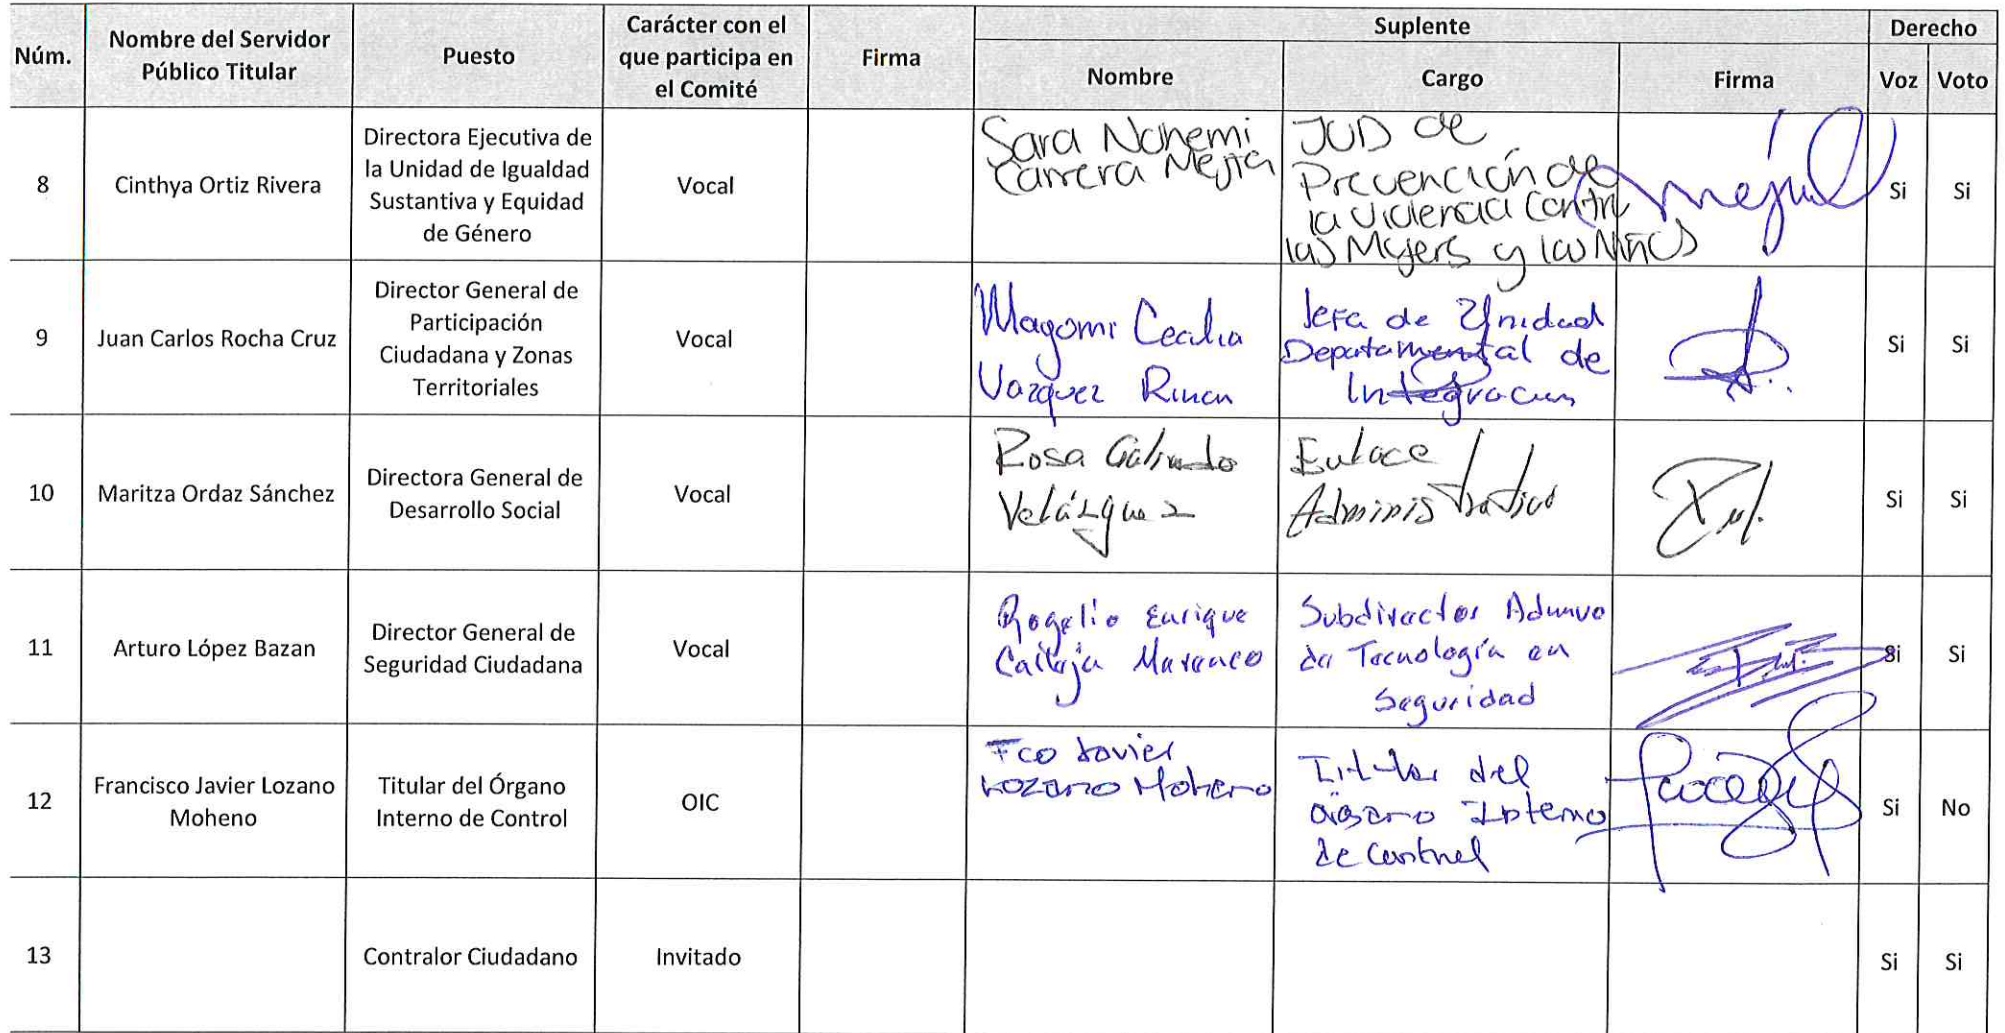 Núm.
Nombre del Servidor
Público Titular
Puesto
Carácter con el
que participa en
el Comité
Firma
Suplente
Nombre
Cargo
Firma
Derecho
Voz
Voto
8
Cinthya Ortiz Rivera
Directora Ejecutiva de
la Unidad de Igualdad
Sustantiva y Equidad
de Género
Vocal
Sara Nohemi
Carrera Mejia
JUD de
Prevención de
la Violencia Contra
las Mujers y las Niñas
Si
Si
9
Juan Carlos Rocha Cruz
Director General de
Participación
Ciudadana y Zonas
Territoriales
Vocal
Magomi Cecilia
Vazquez Rincon
Jefa de Unidad
Departamental de
Integracion
Si
Si
10
Maritza Ordaz Sánchez
Directora General de
Desarrollo Social
Vocal
Rosa Galindo
Velázquez
Enlace
Administrativo
Si
Si
11
Arturo López Bazan
Director General de
Seguridad Ciudadana
Vocal
Rogelio Enrique
Calleja Marenco
Subdirector Admvo
de Tecnología en
Seguridad
Si
Si
12
Francisco Javier Lozano
Moheno
Titular del Órgano
Interno de Control
OIC
Fco Javier
Lozano Moheno
Titular del
Órgano Interno
de Control
Si
No
13
Contralor Ciudadano
Invitado
Si
Si